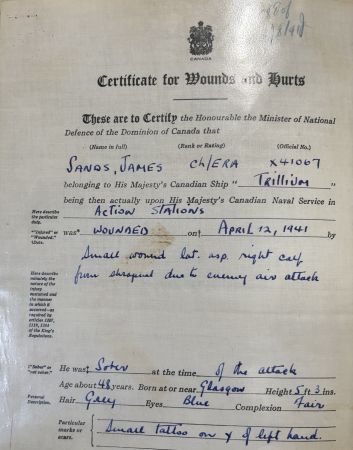 CANADA
Certificate for Wounds and Hurts
These are to Certify the Honourable the Minister of National
Defence of the Dominion of Canada that
(Name in full) (Rank or Rating) (Official No.)
SANDS, JAMES Ch/ERA X41067
belonging to His Majesty's Canadian Ship "TRILLIUM"
being then actually upon His Majesty's Canadian Naval Service in
Here describe the particular duty. ACTION STATIONS
"Injured" or "Wounded." †Date. was* WOUNDED on† APRIL 12, 1941 by
Small wound lat. asp. right calf
from shrapnel due to enemy air attack
Here describe minutely the nature of the injury sustained and the manner in which it occurred—as required by articles 1319, 1364 of the King's Regulations.
‡"Sober" or "not sober." He was‡ Sober at the time of the attack
Age about 48 years. Born at or near Glasgow Height 5 ft 3 ins.
Personal Description. Hair Grey Eyes Blue Complexion Fair
Particular marks or scars. Small tattoo on of left hand.